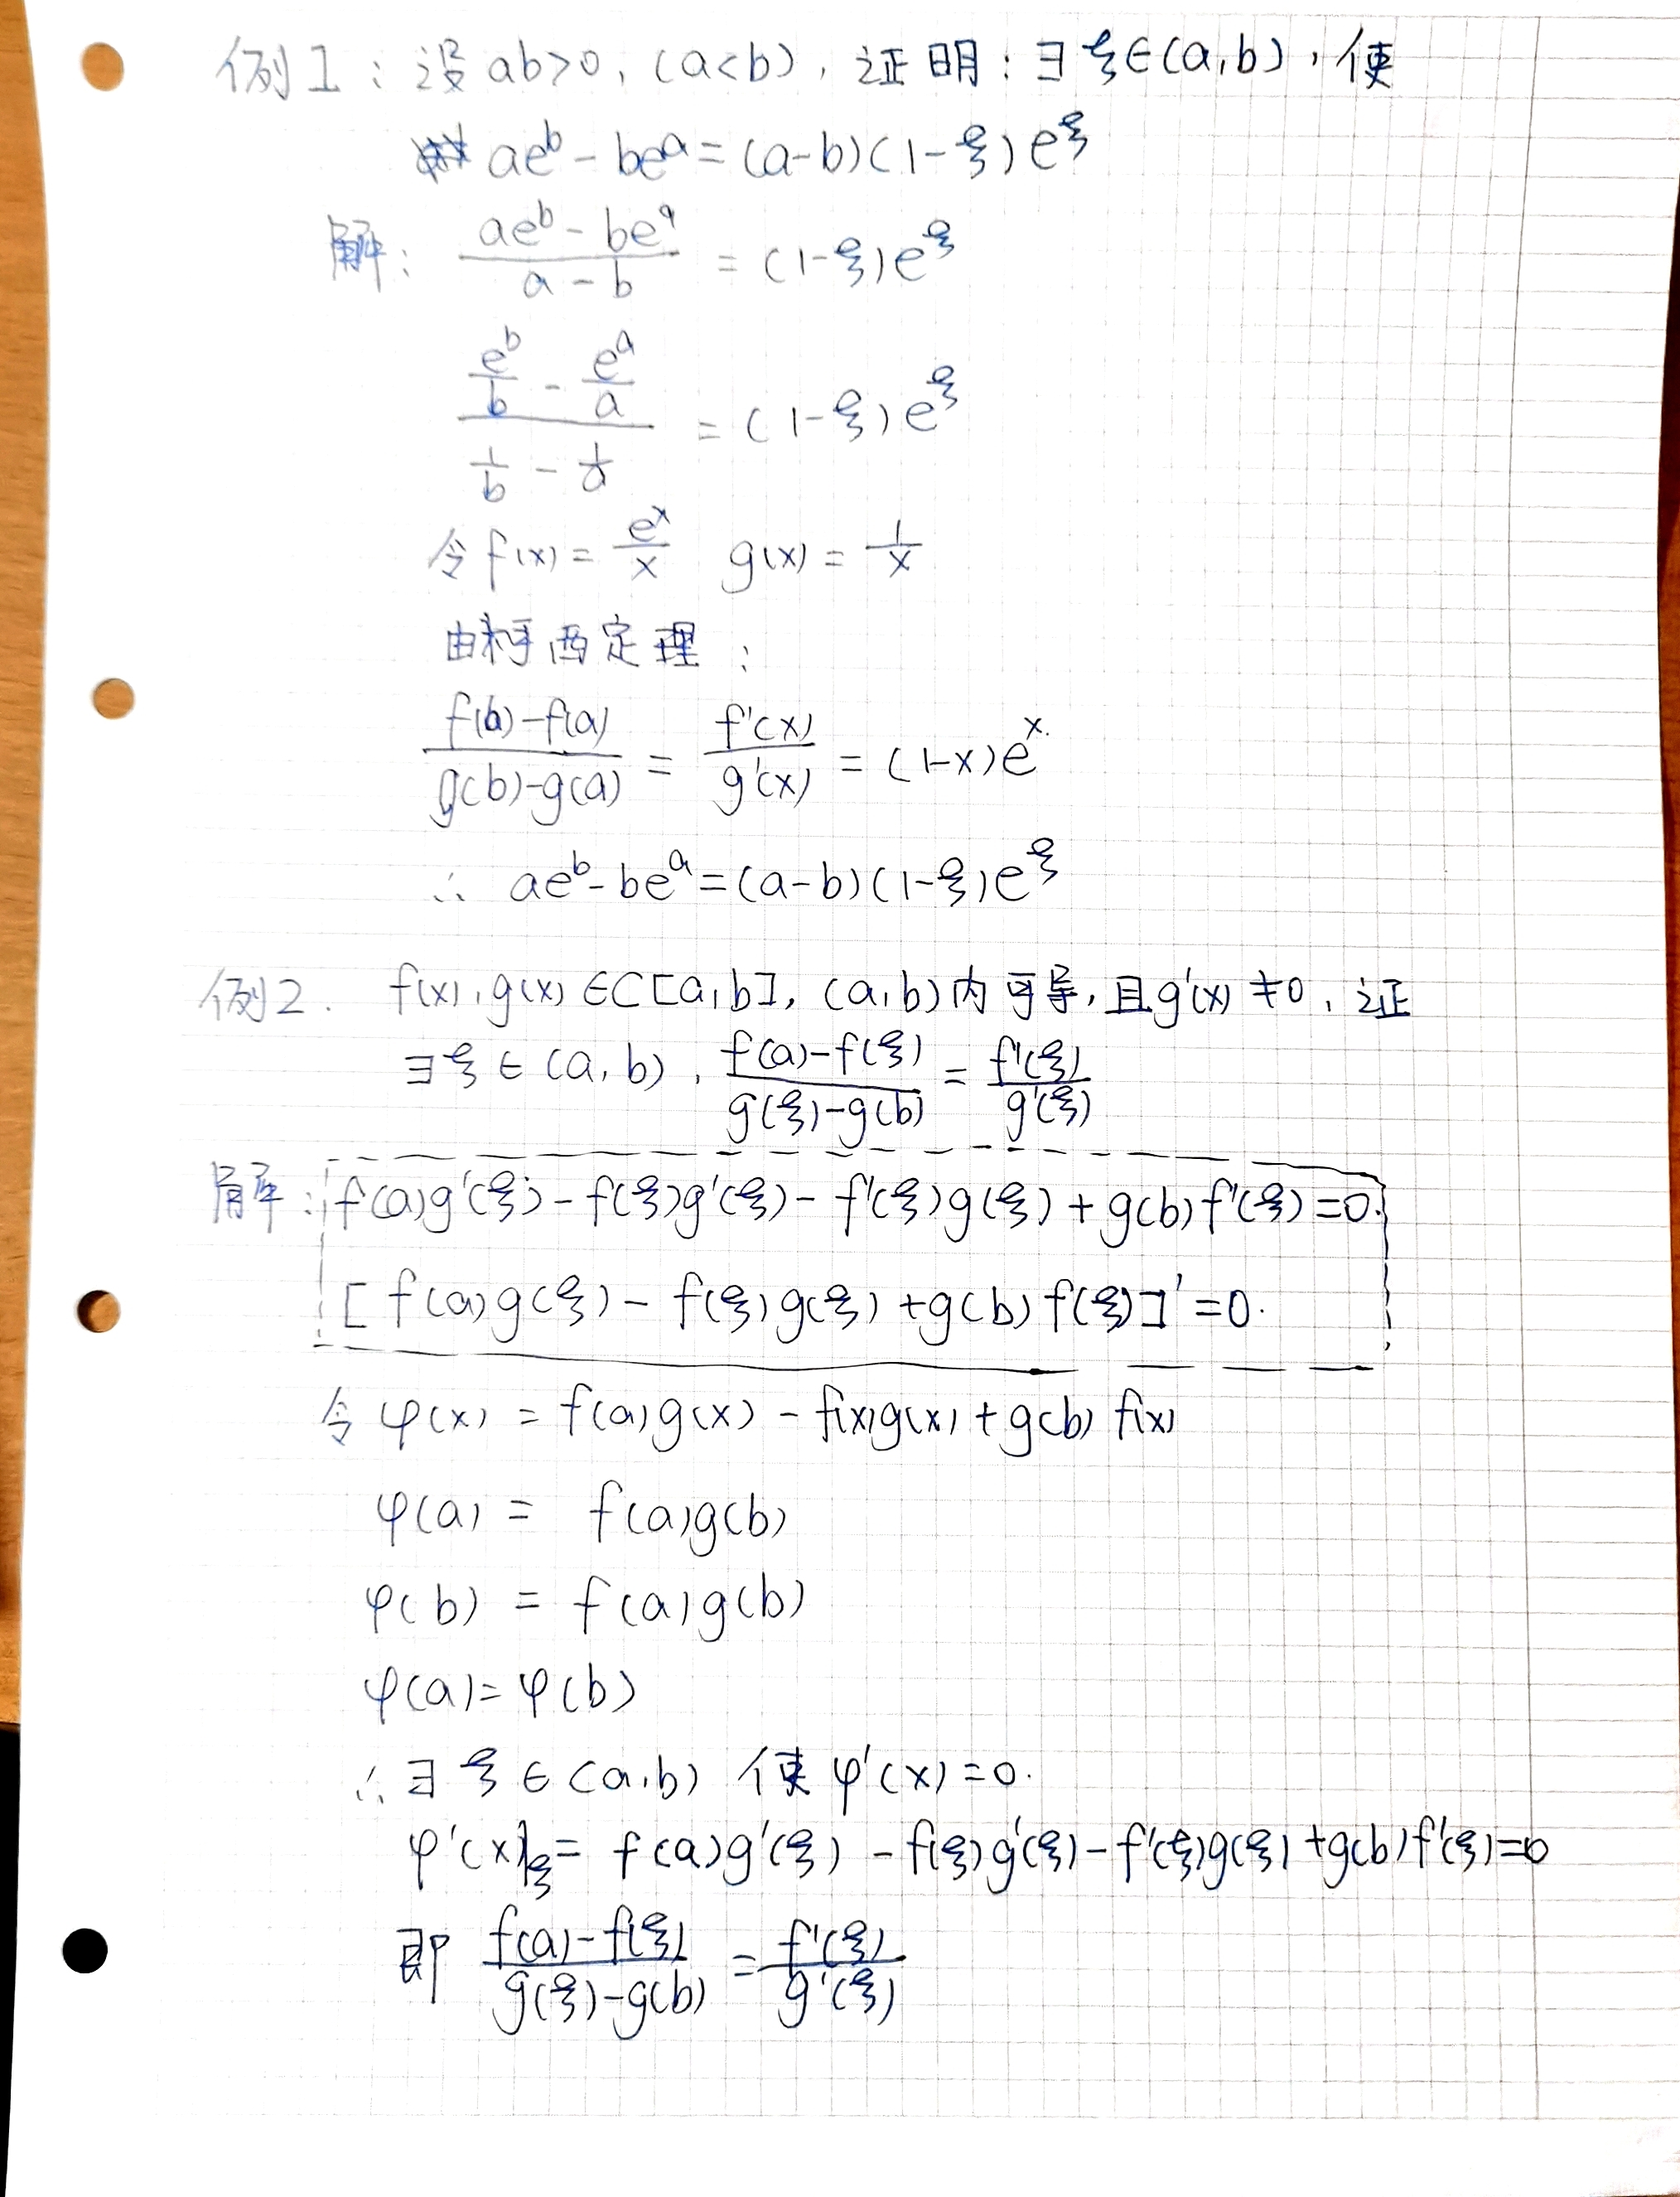 例1：设 ab>0，(a<b)，证明：∃ξ∈(a,b)，使
ae^b - be^a = (a-b)(1-ξ)e^ξ
解： (ae^b - be^a)/(a-b) = (1-ξ)e^ξ
(e^b/b - e^a/a)/(1/b - 1/a) = (1-ξ)e^ξ
令 f(x) = e^x/x  g(x) = 1/x
由柯西定理：
(f(b)-f(a))/(g(b)-g(a)) = f'(x)/g'(x) = (1-x)e^x.
∴ ae^b - be^a = (a-b)(1-ξ)e^ξ
例2. f(x), g(x) ∈C[a,b], (a,b)内可导, 且g'(x) ≠0, 证
∃ξ∈(a,b), (f(a)-f(ξ))/(g(ξ)-g(b)) = f'(ξ)/g'(ξ)
解： f(a)g'(ξ) - f(ξ)g'(ξ) - f'(ξ)g(ξ) + g(b)f'(ξ) = 0.
[f(a)g(ξ) - f(ξ)g(ξ) + g(b)f(ξ)]' = 0.
令 φ(x) = f(a)g(x) - f(x)g(x) + g(b)f(x)
φ(a) = f(a)g(b)
φ(b) = f(a)g(b)
φ(a) = φ(b)
∴ ∃ξ∈(a,b) 使 φ'(x) = 0.
φ'(x)|ξ = f(a)g'(ξ) - f(ξ)g'(ξ) - f'(ξ)g(ξ) + g(b)f'(ξ) = 0
即 (f(a)-f(ξ))/(g(ξ)-g(b)) = f'(ξ)/g'(ξ)